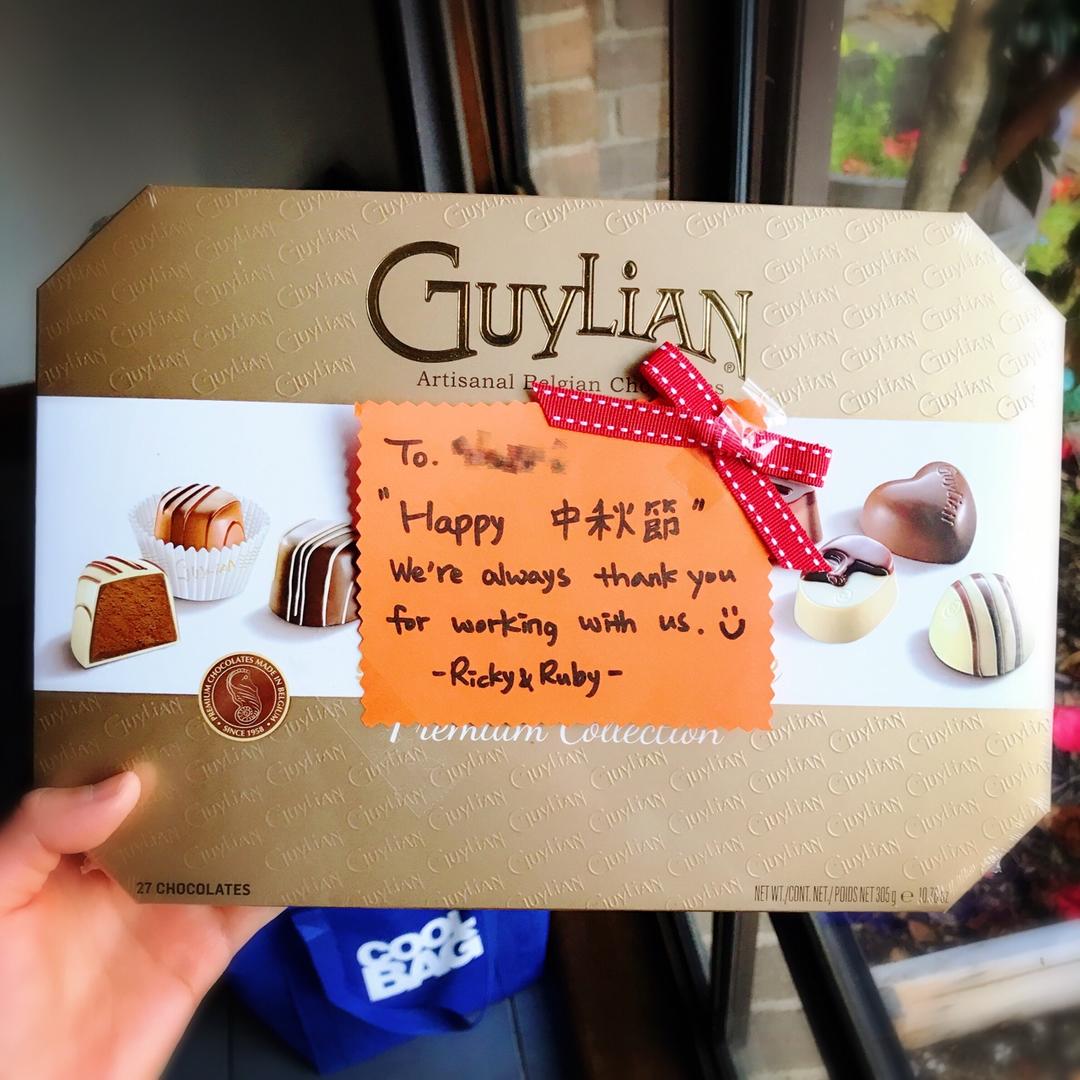 GUYLIAN
Artisanal Belgian
To.
"Happy 中秋節"
We're always thank you
for working with us.
-Ricky & Ruby-
Premium Collection
PREMIUM CHOCOLATES MADE IN BELGIUM
• SINCE 1958 •
27 CHOCOLATES
NET WT./CONT. NET./POIDS NET 305g ℮
COOL
BAG